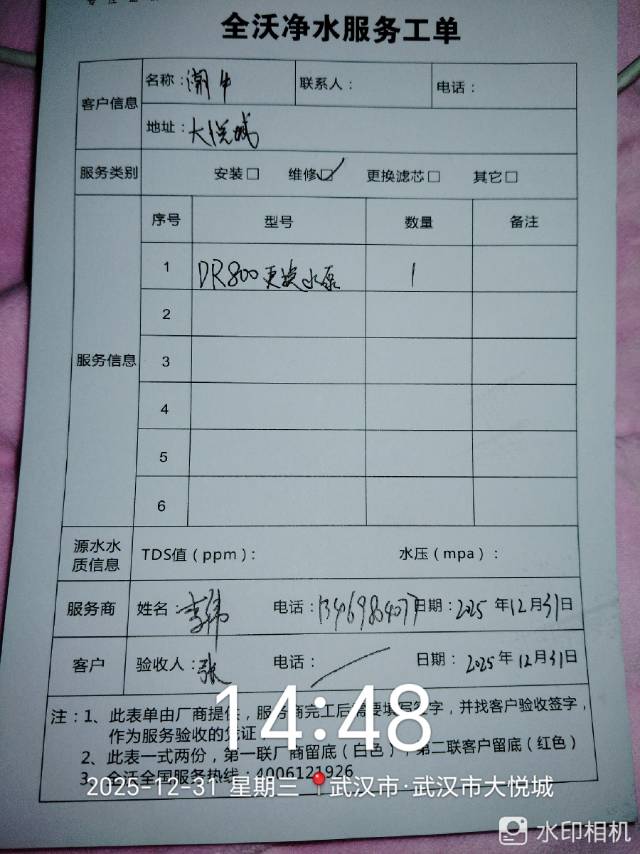 全沃净水服务工单
客户信息 名称：潮牛 联系人： 电话：
地址：大悦城
服务类别 安装□ 维修☑ 更换滤芯□ 其它□
服务信息
序号 型号 数量 备注
1 DR800更换水泵 1
2
3
4
5
6
源水水质信息 TDS值（ppm）： 水压（mpa）：
服务商 姓名：李伟 电话： 日期：2025年12月31日
客户 验收人：张 电话： 日期：2025年12月31日
注：1、此表单由厂商提供，服务商完工后需要填写签字，并找客户验收签字，
作为服务验收的凭证
2、此表一式两份，第一联厂商留底（白色），第二联客户留底（红色）
3、全沃全国服务热线：4006121926
14:48
2025-12-31 星期三 武汉市·武汉市大悦城
水印相机